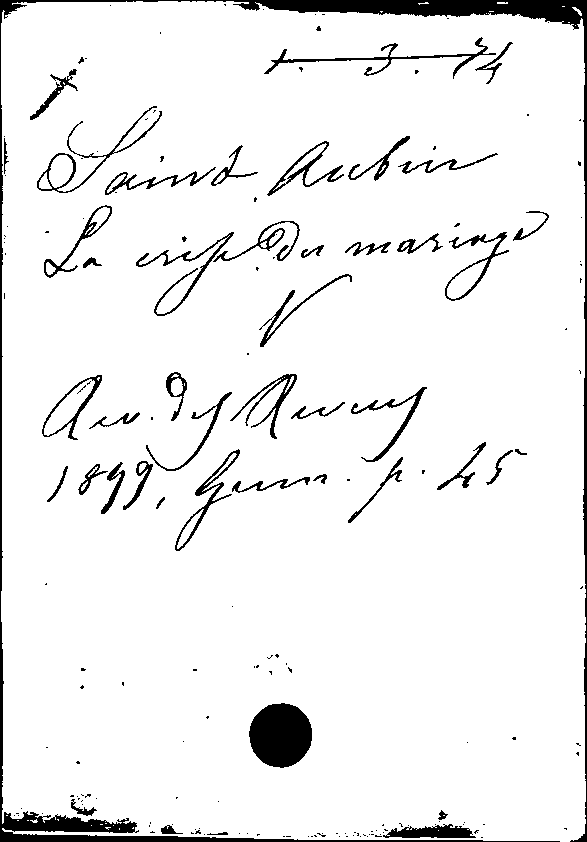 1. 3. 74
Saint Aubin
La crise du mariage
V
Rev. des Revues
1899, p. 45